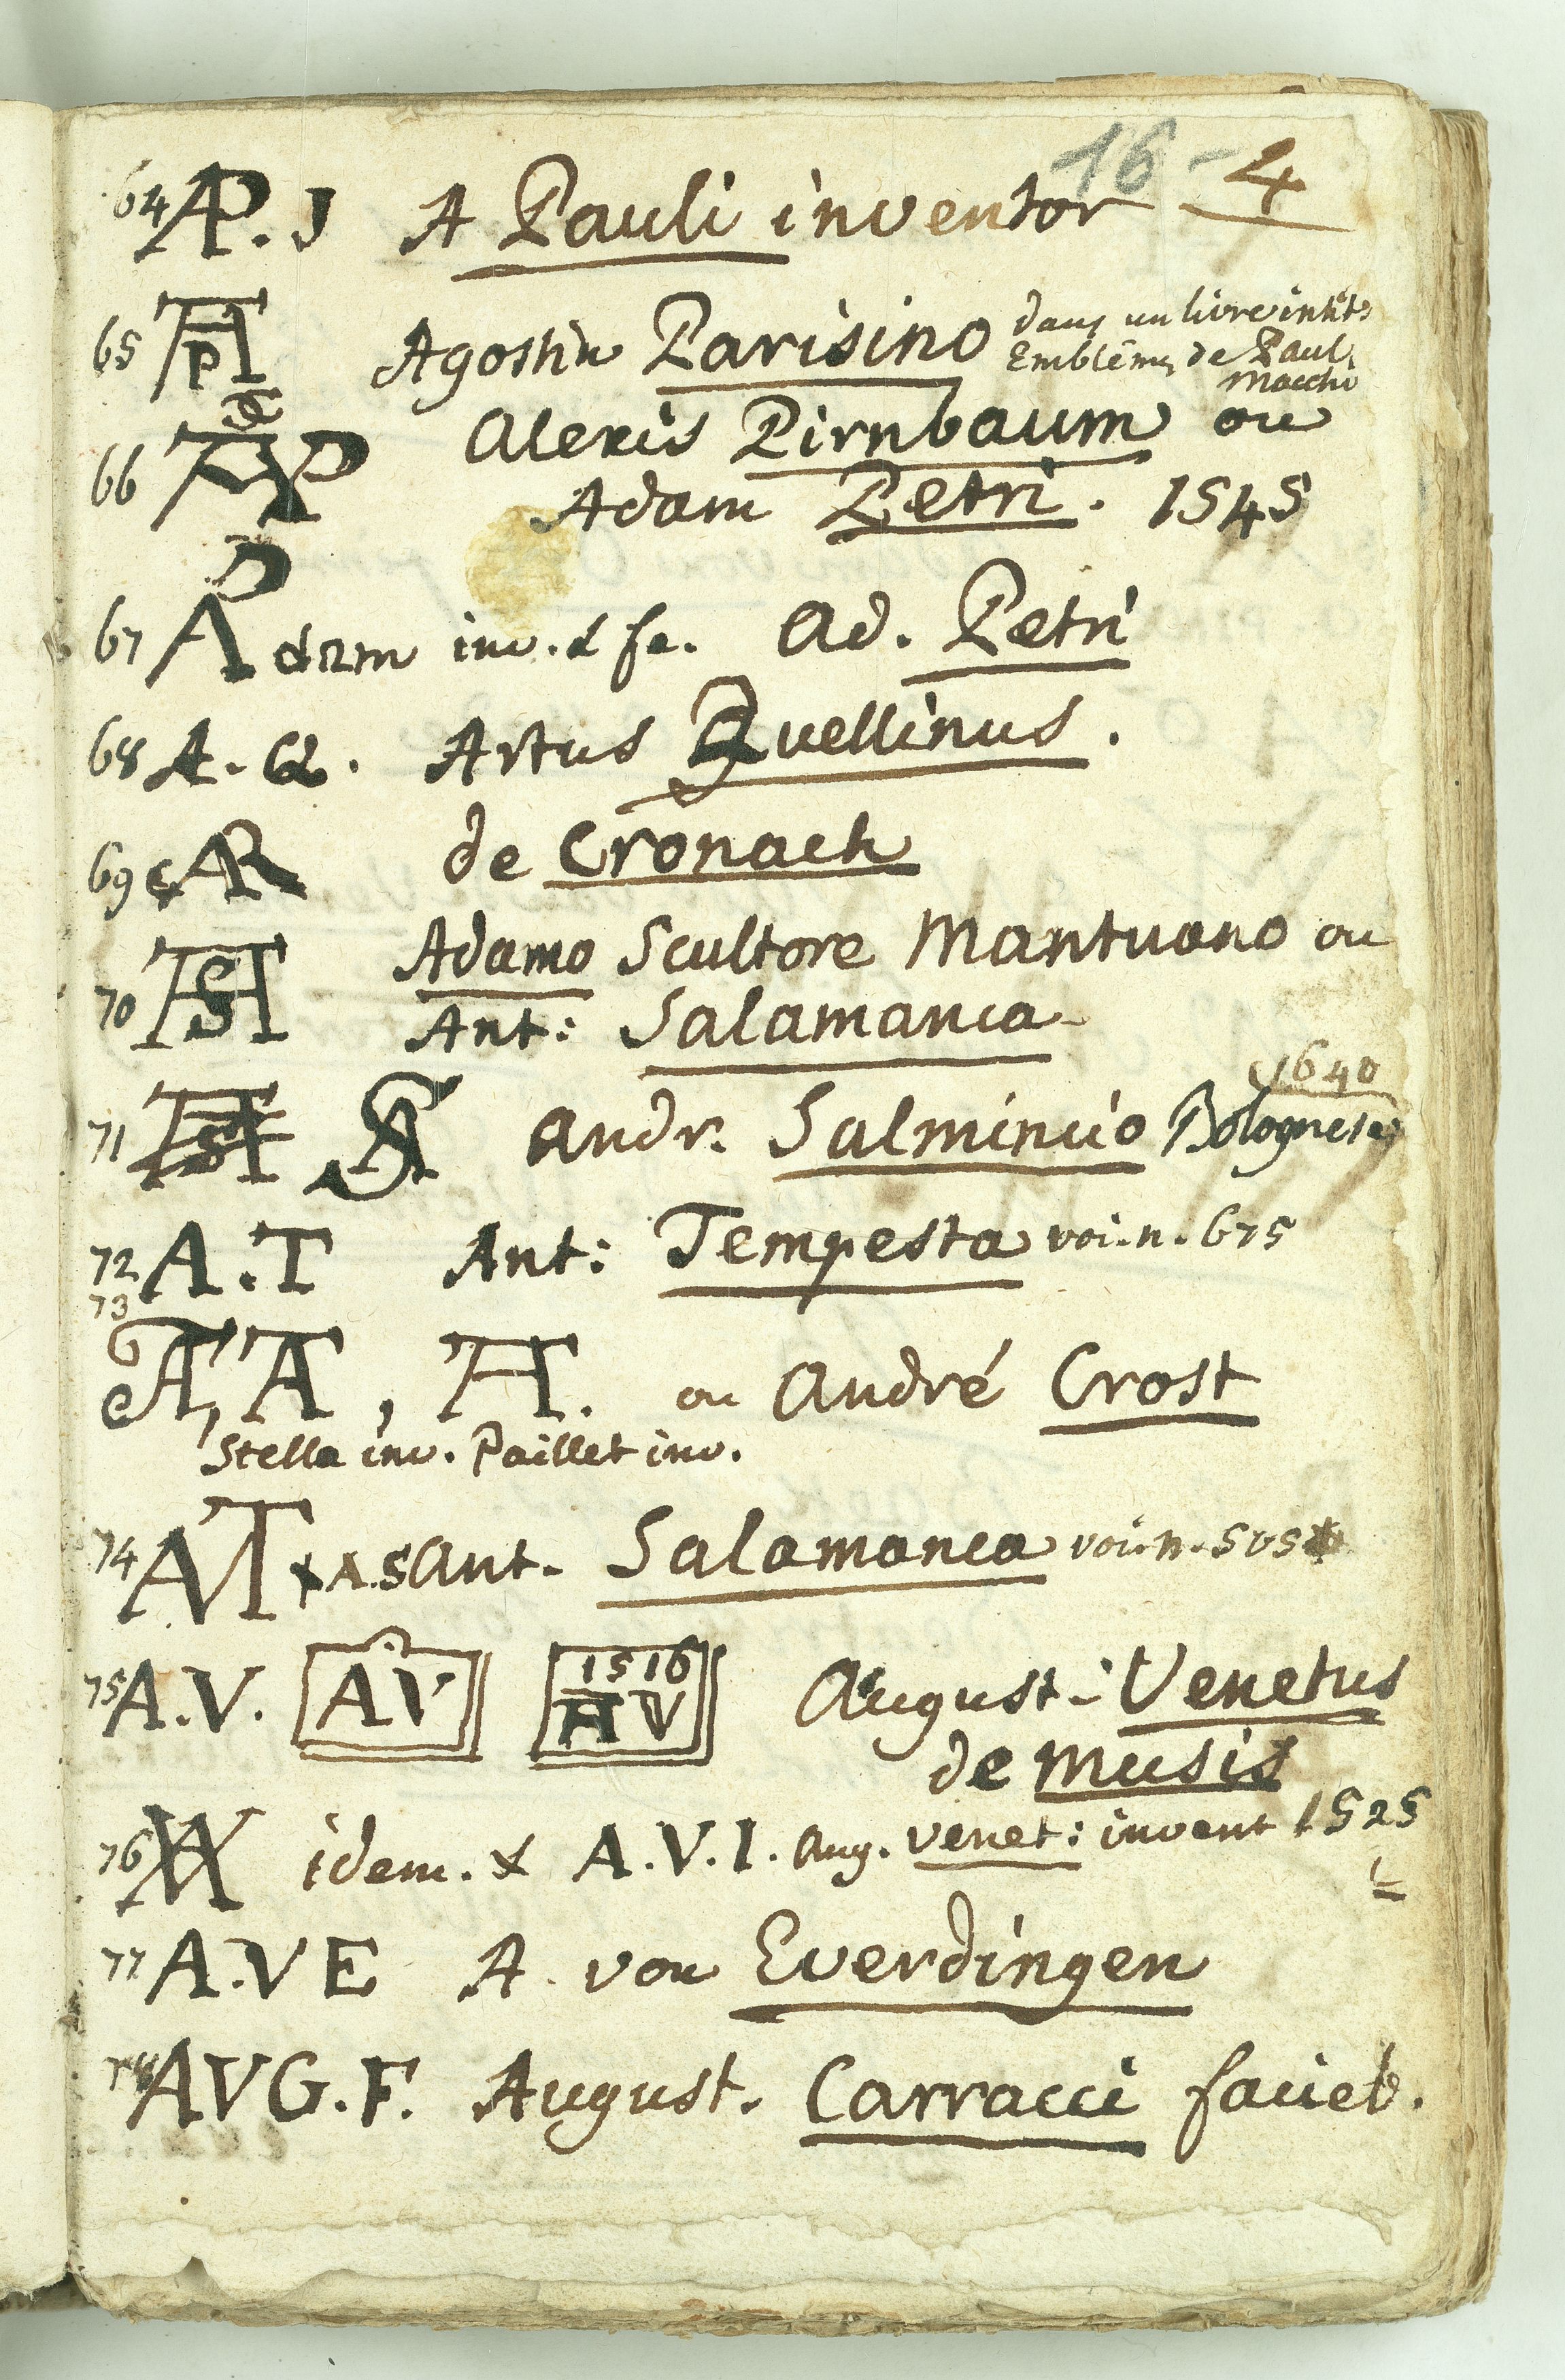 16 - 4
64 AP. J A Pauli inventor
65 AP Agostin Parisino dans un livre intit:
Emblêmes de Paul
Macchi
66 AP Alexis Pirnbaum ou
Adam Petri. 1545
67 AP dam inv. & fe. Ad. Petri
68 A. Q. Artus Quellinus.
69 AR de Cronach
70 AS Adamo Scultore Mantuano ou
Ant: Salamanca
71 SA Andr. Salmincio Bolognese
1640
72 A.T Ant: Tempesta voi. n. 675
73
AT, TA, AT. ou André Crost
Stella inv. Paillet inv.
74 AMT & A.S Ant. Salamanca voi. n. 505
75 A.V. AV 1516 AV August: Venetus
de Musis
76 AV idem. & A.V.I. Aug. Venet: invent 1525
77 A.VE A. von Everdingen
78 AVG.F. August. Carracci faciet.